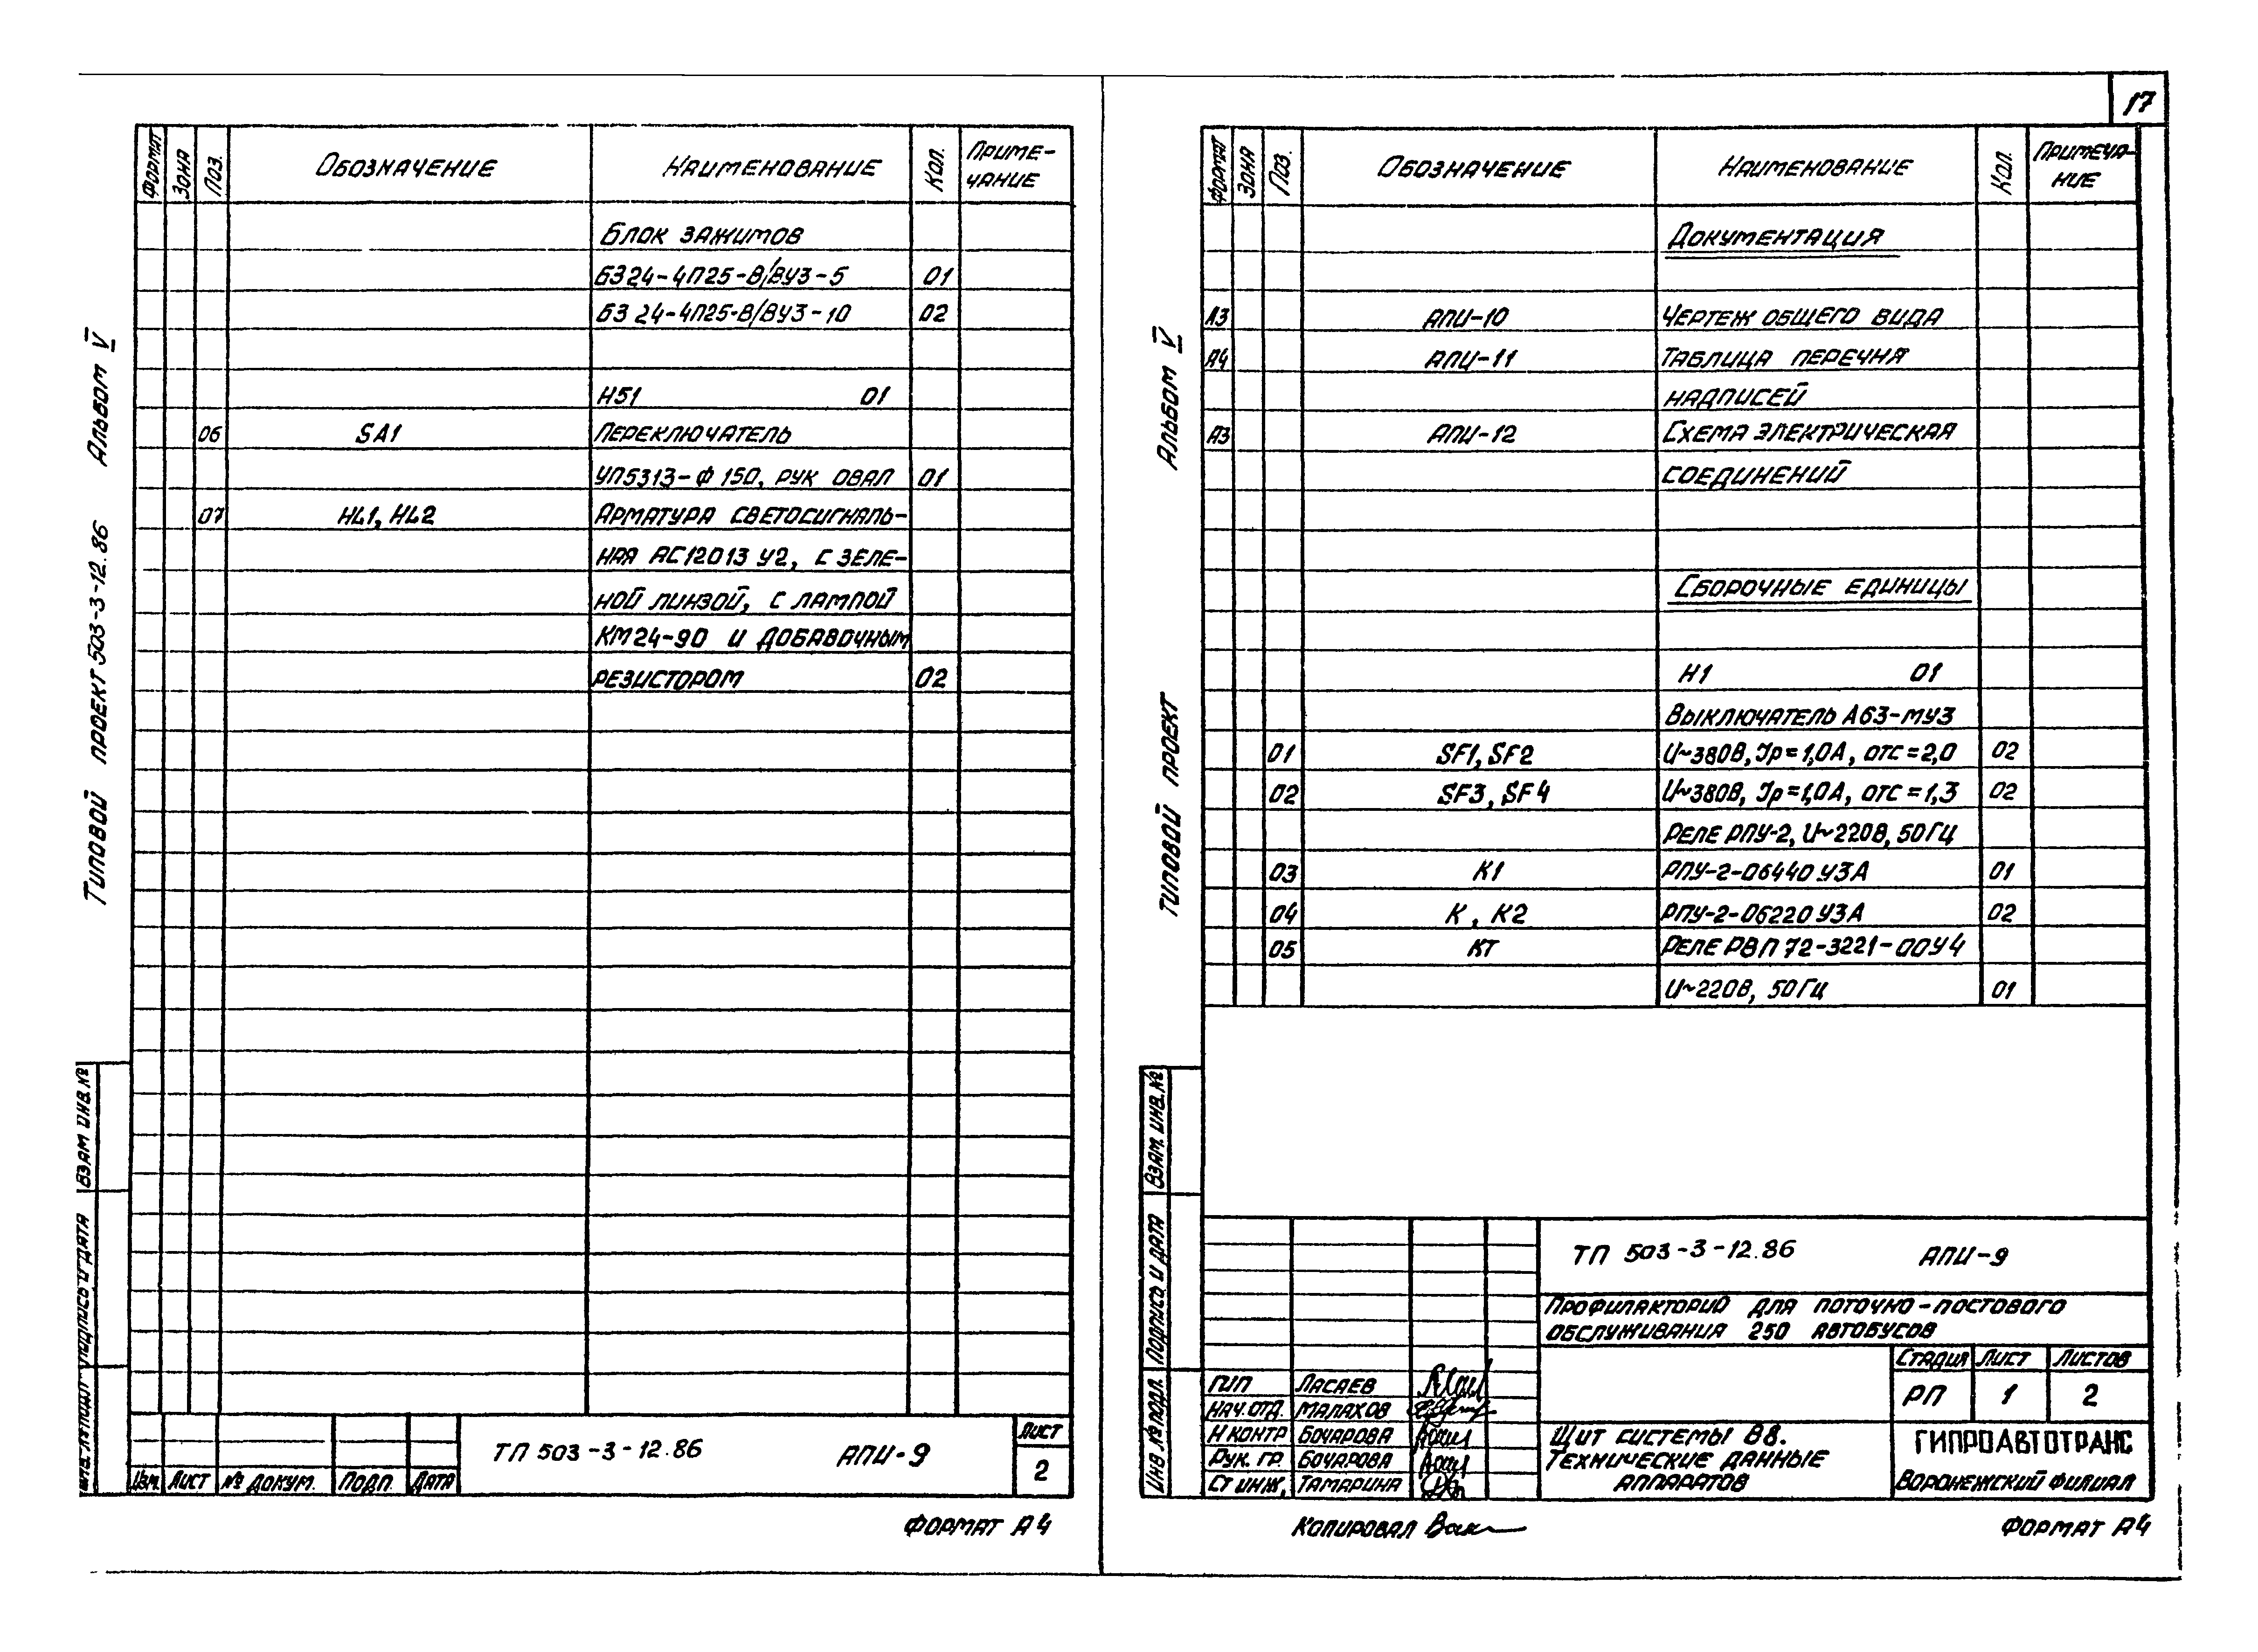 Альбом V
Типовой проект 503-3-12.86
Формат Зона Поз. Обозначение Наименование Кол. Приме-
чание
Блок зажимов
БЗ24-4П25-В/ВУ3-5 01
БЗ 24-4П25-В/ВУ3-10 02
Н51 01
06 SA1 Переключатель
УП5313-Ф 150, рук овал 01
07 HL1, HL2 Арматура светосигналь-
ная АС12013 У2, с зеле-
ной линзой, с лампой
КМ24-90 и добавочным
резистором 02
Взам инв.№
Подпись и дата
Инв.№ подл
Изм. Лист № докум. Подп. Дата
ТП 503-3-12.86 АПИ-9
Лист
2
Формат А4
17
Альбом V
Типовой проект
Формат Зона Поз. Обозначение Наименование Кол. Примеча-
ние
Документация
А3 АПИ-10 Чертеж общего вида
А4 АПИ-11 Таблица перечня
надписей
А3 АПИ-12 Схема электрическая
соединений
Сборочные единицы
Н1 01
Выключатель А63-МУ3
01 SF1, SF2 U~380В, Iр=1,0А, отс=2,0 02
02 SF3, SF4 U~380В, Iр=1,0А, отс=1,3 02
Реле РПУ-2, U~220В, 50Гц
03 К1 РПУ-2-06440 У3А 01
04 К, К2 РПУ-2-06220 У3А 02
05 КТ Реле РВП 72-3221-00У4
U~220В, 50Гц 01
Взам. инв.№
Подпись и дата
Инв № подл.
ТП 503-3-12.86 АПИ-9
Профилакторий для поточно-постового
обслуживания 250 автобусов
Стадия Лист Листов
РП 1 2
ГИП Ласаев
Нач.отд. Малахов
Н контр Бочарова
Рук. гр. Бочарова
Ст инж, Тамарина
Щит системы В8.
Технические данные
аппаратов
ГИПРОАВТОТРАНС
Воронежский филиал
Копировал
Формат А4